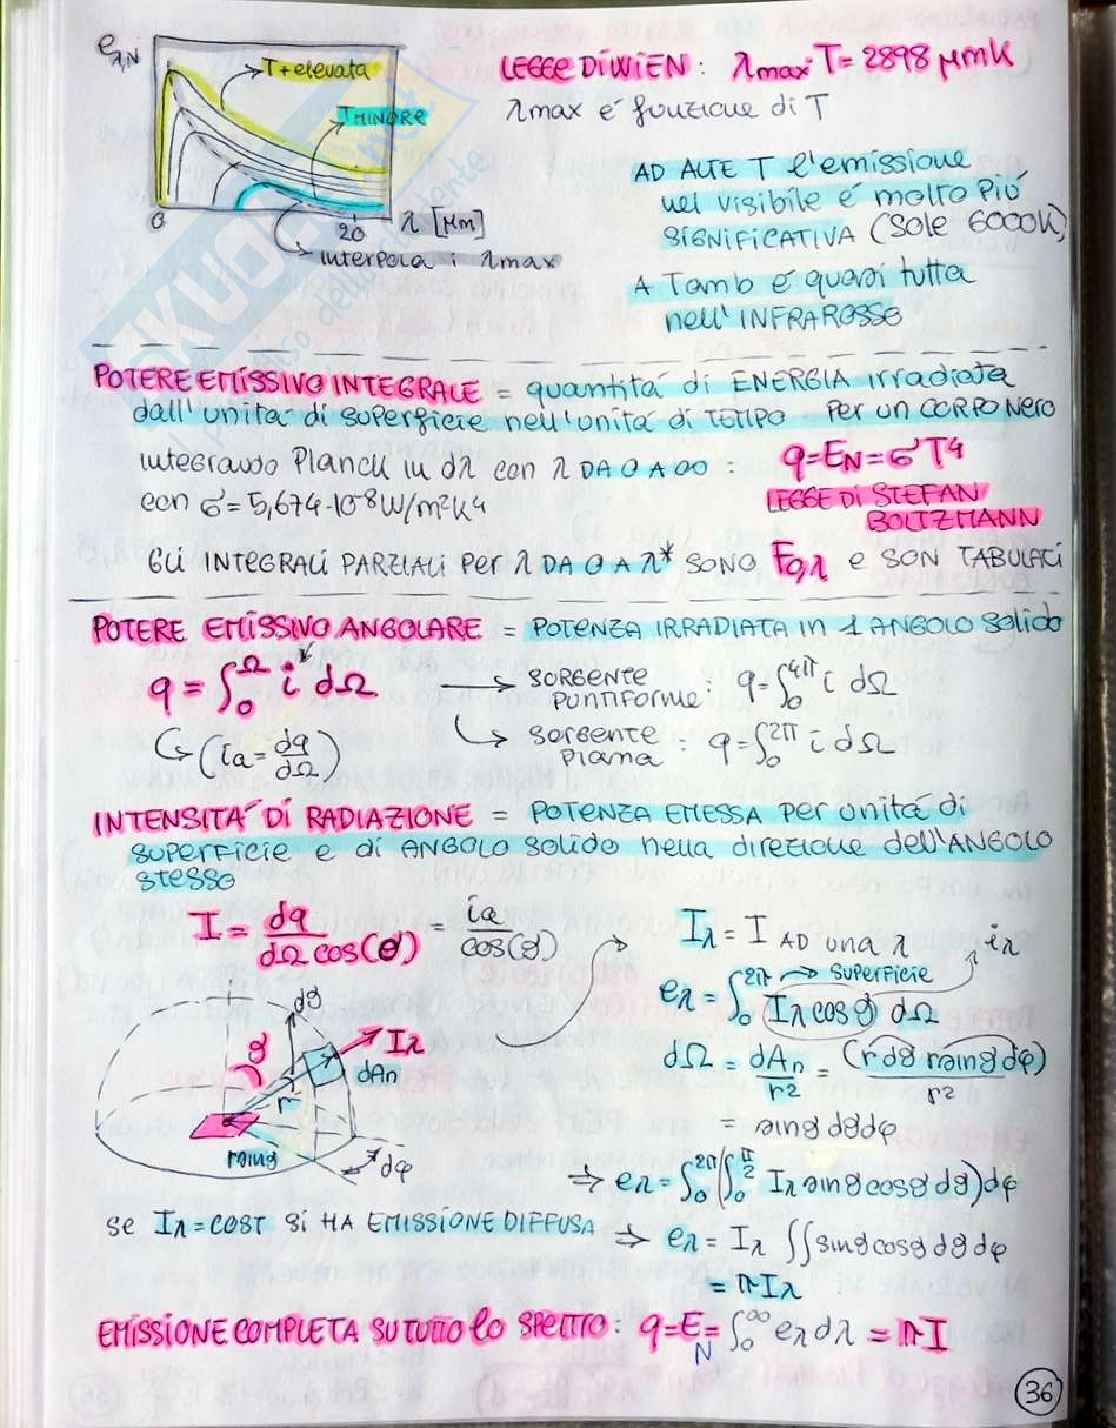 eλ,N
T+elevata
TMINORE
0
20
λ [μm]
interpola i λmax
LEGGE DI WIEN: λmax·T= 2898 μmK
λmax é funzione di T
AD ALTE T l'emissione
nel visibile é molto più
SIGNIFICATIVA (Sole 6000K)
A Tamb é quasi tutta
nell'INFRAROSSO
POTERE EMISSIVO INTEGRALE = quantitá di ENERGIA irradiata
dall'unitá di superficie nell'unitá di TEMPO Per un CORPO Nero
integrando Planck in dλ con λ DA 0 A ∞ : q=EN=σT⁴
con σ=5,674·10⁻⁸W/m²K⁴
LEGGE DI STEFAN
BOLTZMANN
Gli INTEGRALI PARZIALI Per λ DA 0 A λ* SONO F0,λ e SON TABULATI
POTERE EMISSIVO ANGOLARE = POTENZA IRRADIATA in 1 ANGOLO Solido
q = ∫₀^Ω i dΩ → SORGENTE PUNTIFORME : q=∫₀^4π i dΩ
(ia=dq/dΩ) → sorgente piana : q=∫₀^2π i dΩ
INTENSITA' DI RADIAZIONE = POTENZA EMESSA Per unitá di
superficie e di ANGOLO solido nella direzione dell'ANGOLO
stesso
I = dq/dΩ cos(θ) = ia/cos(ϑ)
Iλ = I AD una λ
iλ
eλ = ∫₀^2π → superficie Iλcosϑ dΩ
dΩ = dAn/r² = (r dϑ rsinϑ dφ)/r²
= sinϑ dϑdφ
dϑ
ϑ
Iλ
dAn
r
rsinϑ
dφ
⇒ eλ=∫₀^2π(∫₀^π/2 Iλ sinϑcosϑ dϑ)dφ
se Iλ=COST si HA EMISSIONE DIFFUSA ⇒ eλ = Iλ ∫∫sinϑcosϑ dϑ dφ
= πIλ
EMISSIONE COMPLETA SU TUTTO lo SPETTRO: q=EN=∫₀^∞ eλdλ = πI
36